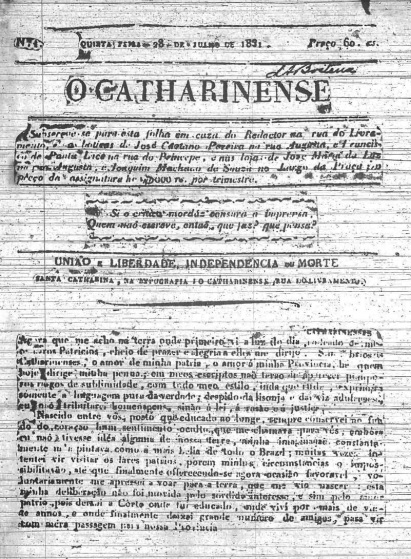 Nº 1
QUINTA FEIRA - 28 - DE JULHO DE 1831.
Preço 60. rs.
O CATHARINENSE
Subscreve-se para esta folha em caza do Redactor na rua do Livra-
mento, e a botica de José Caetano Pereira na rua Augusta,
na rua do Principe, e nas lojas de José Maria da Luz
na rua Augusta, e Joaquim Machado de Souza no Largo da Praça
preço da assignatura he rs. por trimestre.
Si o critico mordaz censura a Imprensa,
Quem não escreve, então, que faz? que pensa?
UNIÃO E LIBERDADE, INDEPENDENCIA OU MORTE
SANTA CATHARINA, NA TYPOGRAFIA DO CATHARINENSE, RUA DO LIVRAMENTO.
CATHARINENSES
Agora que me acho na terra onde primeiro vi a luz do dia, rodeado de
caros Patricios, cheio de prazer e alegria a elles me dirijo. Sim
Catharinenses, o amor de minha patria, o amor á minha Provincia, he quem
hoje dirige minha penna: em meus escriptos não
rasgos de sublimidade, com todo meu estilo, inda que
somente a linguagem pura da verdade; despido da lisonja e da vil adulação,
tributarei homenagens, sinão á lei, á razão ou á justiça;
Nascido entre vós, posto que educado ao longe, sempre conservei no fun-
do do coração hum sentimento occulto, que me chamava para vós; embora
eu não tivesse idéa alguma de nossa terra, minha imaginação constante-
mente m'a pintava como a mais bella de todo o Brazil; muitas vezes in-
tentei vir visitar os lares patrios, porem minhas circumstancias o impos-
sibilitavão, até que finalmente offerecendo-se agora occasião favoravel, vo-
luntariamente me apressei a voar para a terra, que me vio nascer: esta
minha deliberação não foi movida pelo sordido interesse, e sim pelo amor
patrio, pois deixei a Côrte onde fui educado, onde vivi por mais de
de annos, e onde finalmente deixei grande numero de amigos, para vir
com mera passagem para nossa Provincia